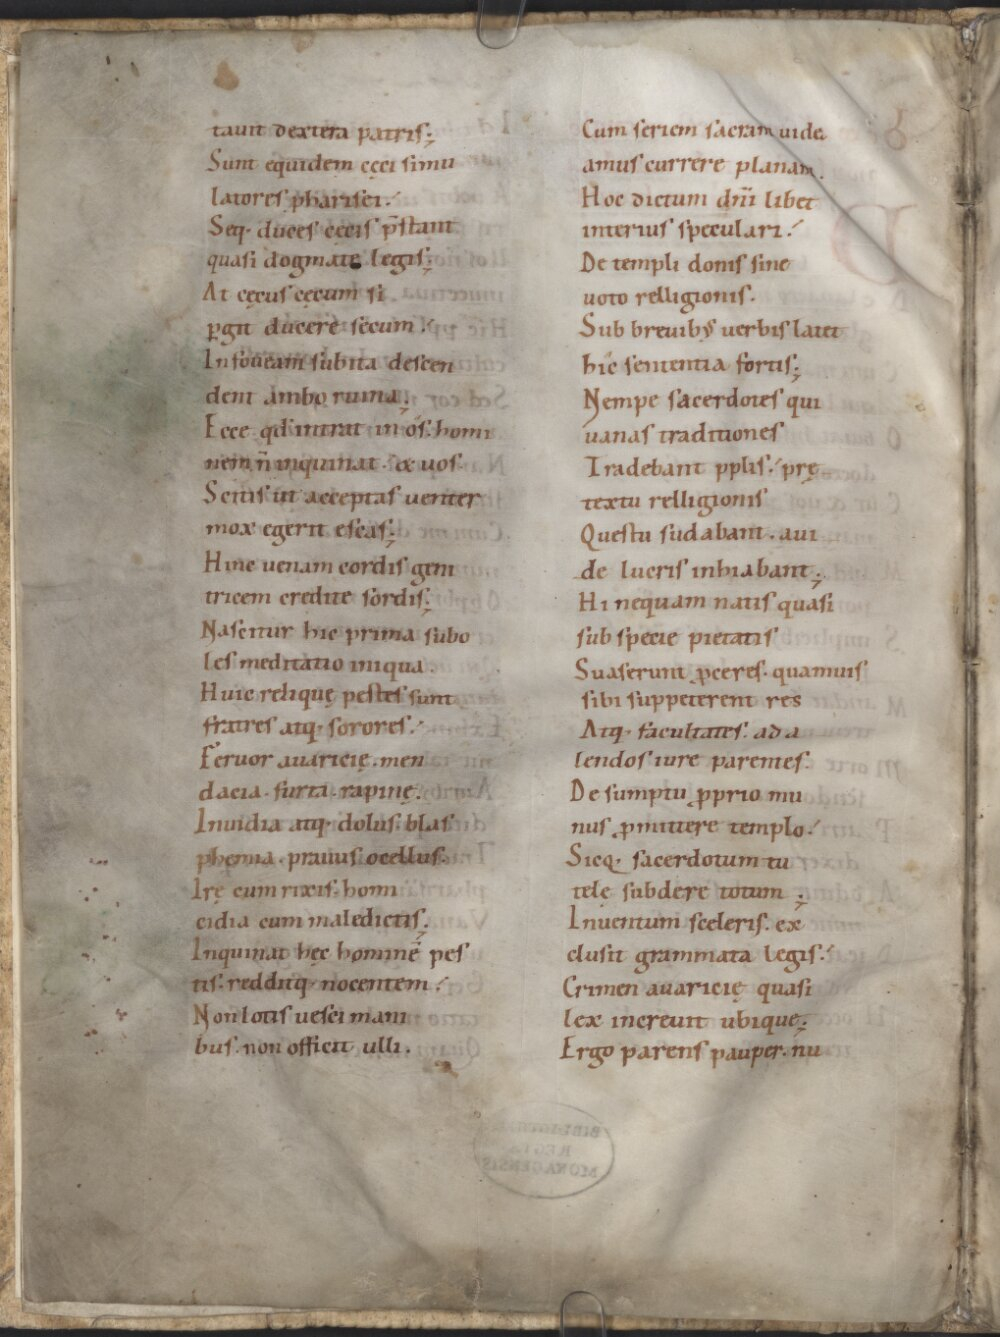 tauit dextera patris;
Sunt equidem cęci simu
latores pharisei.
Seq. duces cęcis p̄stant
quasi dogmate legis;
At cęcus cęcum si
ꝑgit ducere secum.
In foueam subita descen
dent ambo ruina;
Ecce qđ intrat in os. homi
nem n̄ inquinat. & uos.
Scitis ut acceptas uenter
mox egerit escas;
Hinc uenam cordis geni
tricem credite sordis;
Nascitur hic prima subo
les meditatio iniqua.
Huic reliquę pestes sunt
fratres atq. sorores.
Feruor auaricię. men
dacia. furta. rapinę.
Inuidia atq. dolus blas
phemia. prauus ocellus.
Irę cum rixis. homi
cidia cum maledictis;
Inquinat hęc hominē pes
tis. redditq. nocentem.
Non lotis uesci mani
bus. non officit ulli.
Cum seriem sacram uide
amus currere planam.
Hoc dictum dn̄i libet
interius speculari.
De templi donis sine
uoto relligionis.
Sub breuibꝰ uerbis latet
hic sententia fortis;
Nempe sacerdotes qui
uanas traditiones
Tradebant pplis. prę
textu relligionis
Questu sudabant. aui
de lucris inhiabant;
Hi nequam natis quasi
sub specie pietatis
Suaserunt ꝓceres. quamuis
sibi suppeterent res
Atq. facultates. ad a
lendos iure parentes.
De sumptu ꝓprio mu
nus ꝓmittere templo.
Sicq. sacerdotum tu
telę subdere totum;
Inuentum sceleris. ex
clusit grammata legis.
Crimen auaricię quasi
lex increuit ubique;
Ergo parens pauper. nu
BIBLIOTHECA
REGIA
MONACENSIS